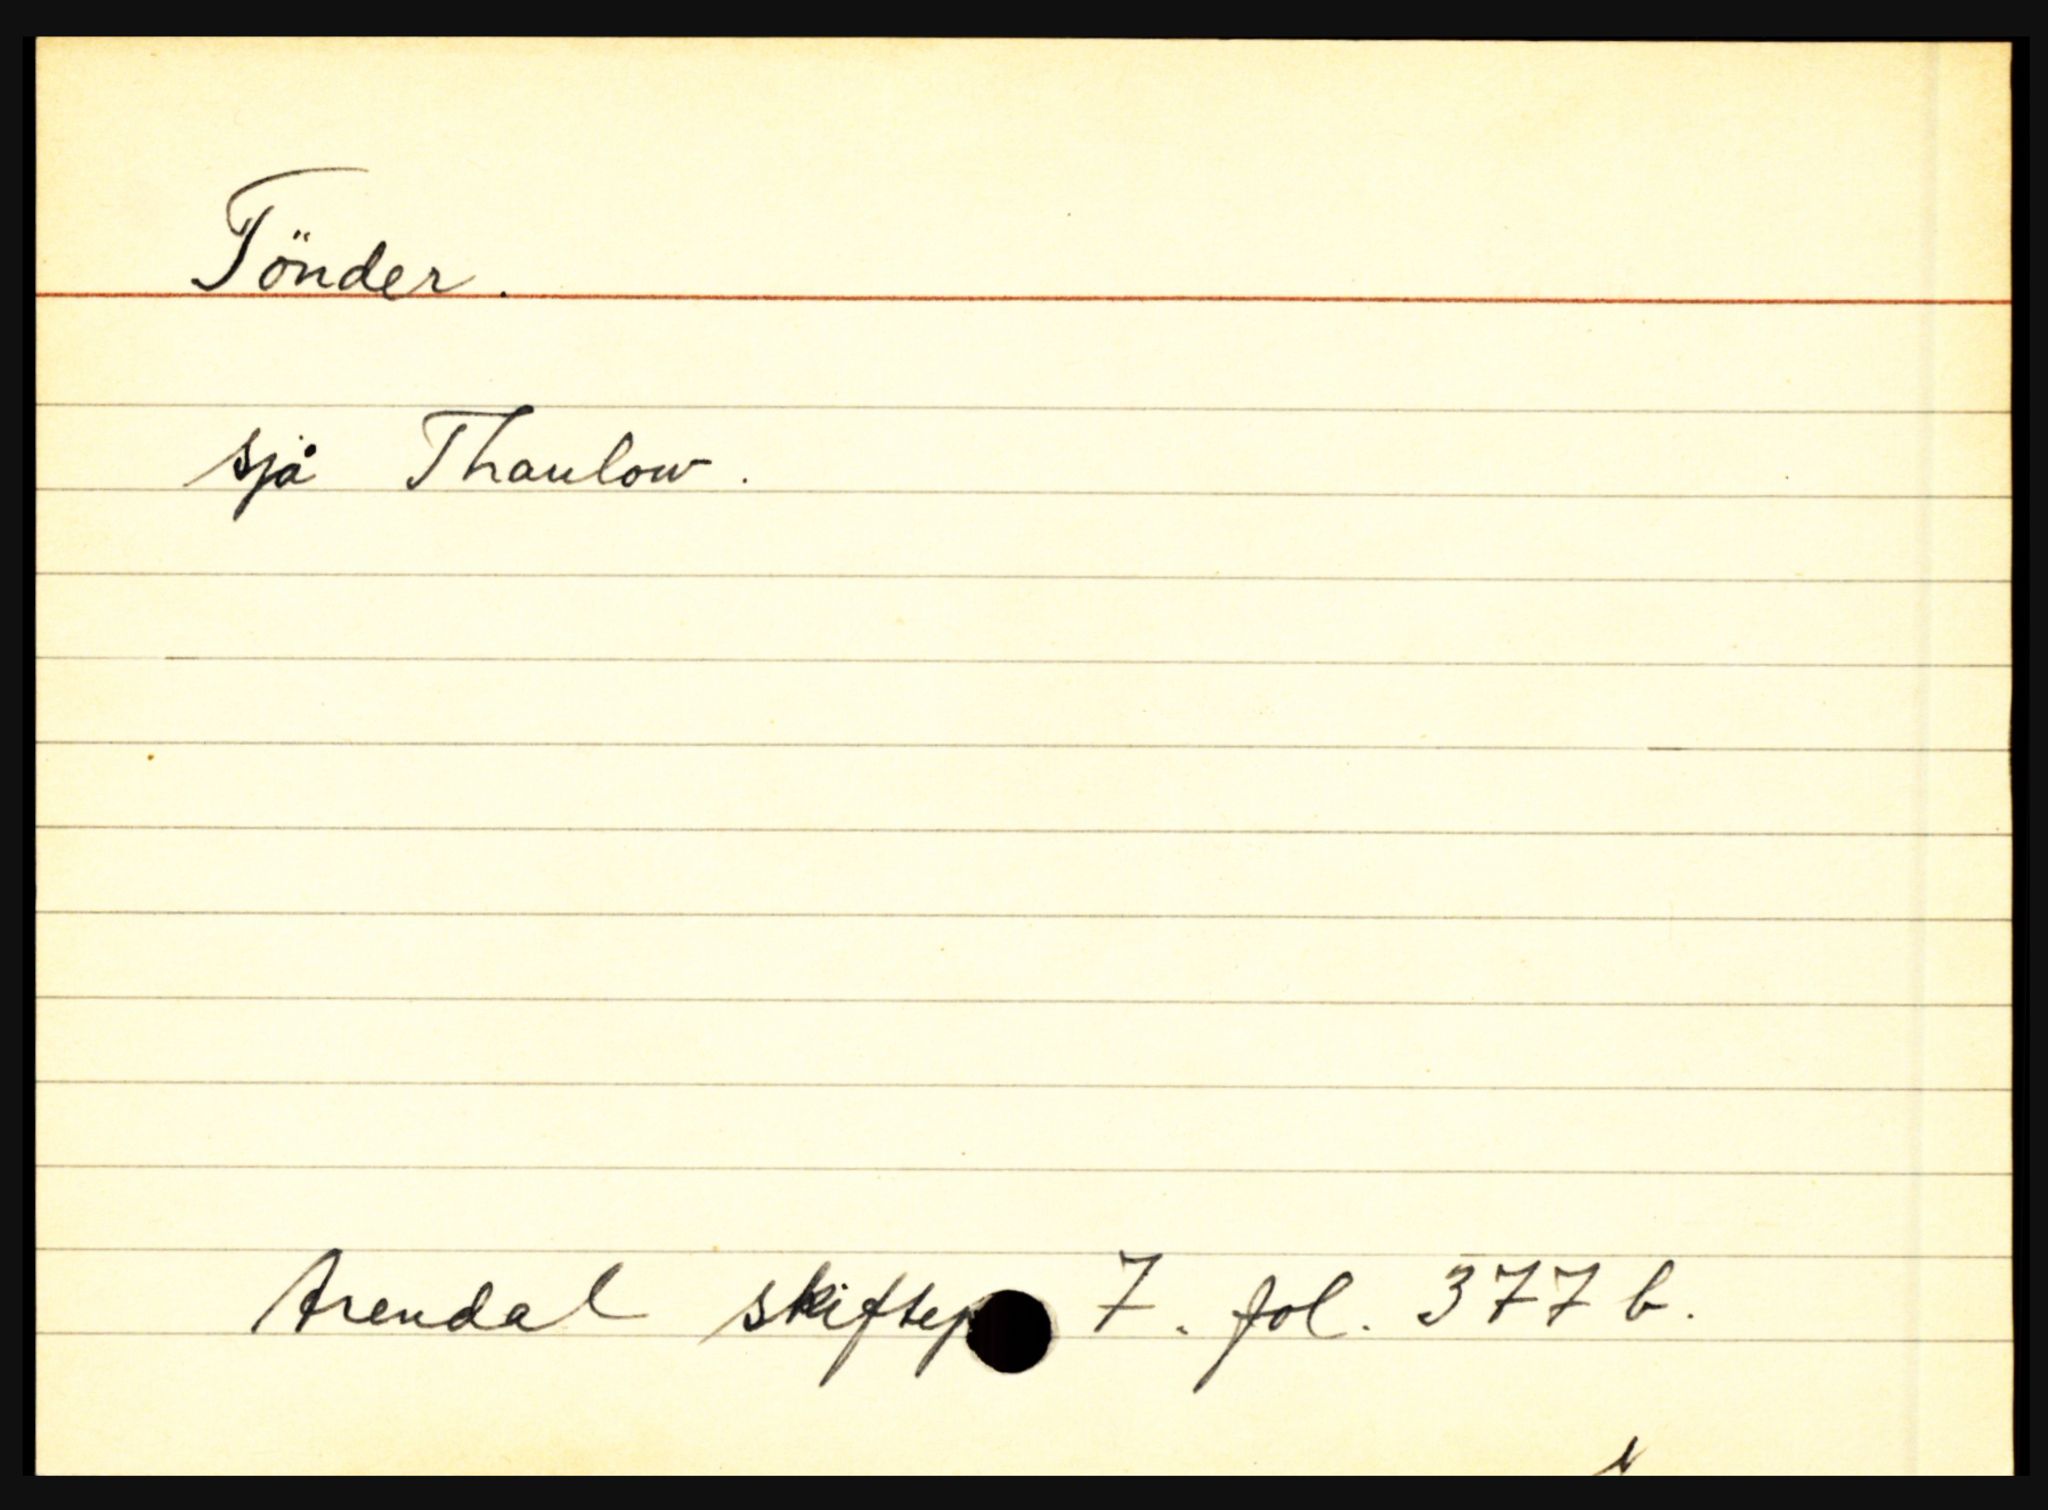 Tönder.
sjå Thaulow.
Arendal skiftep 7. fol. 377 b.